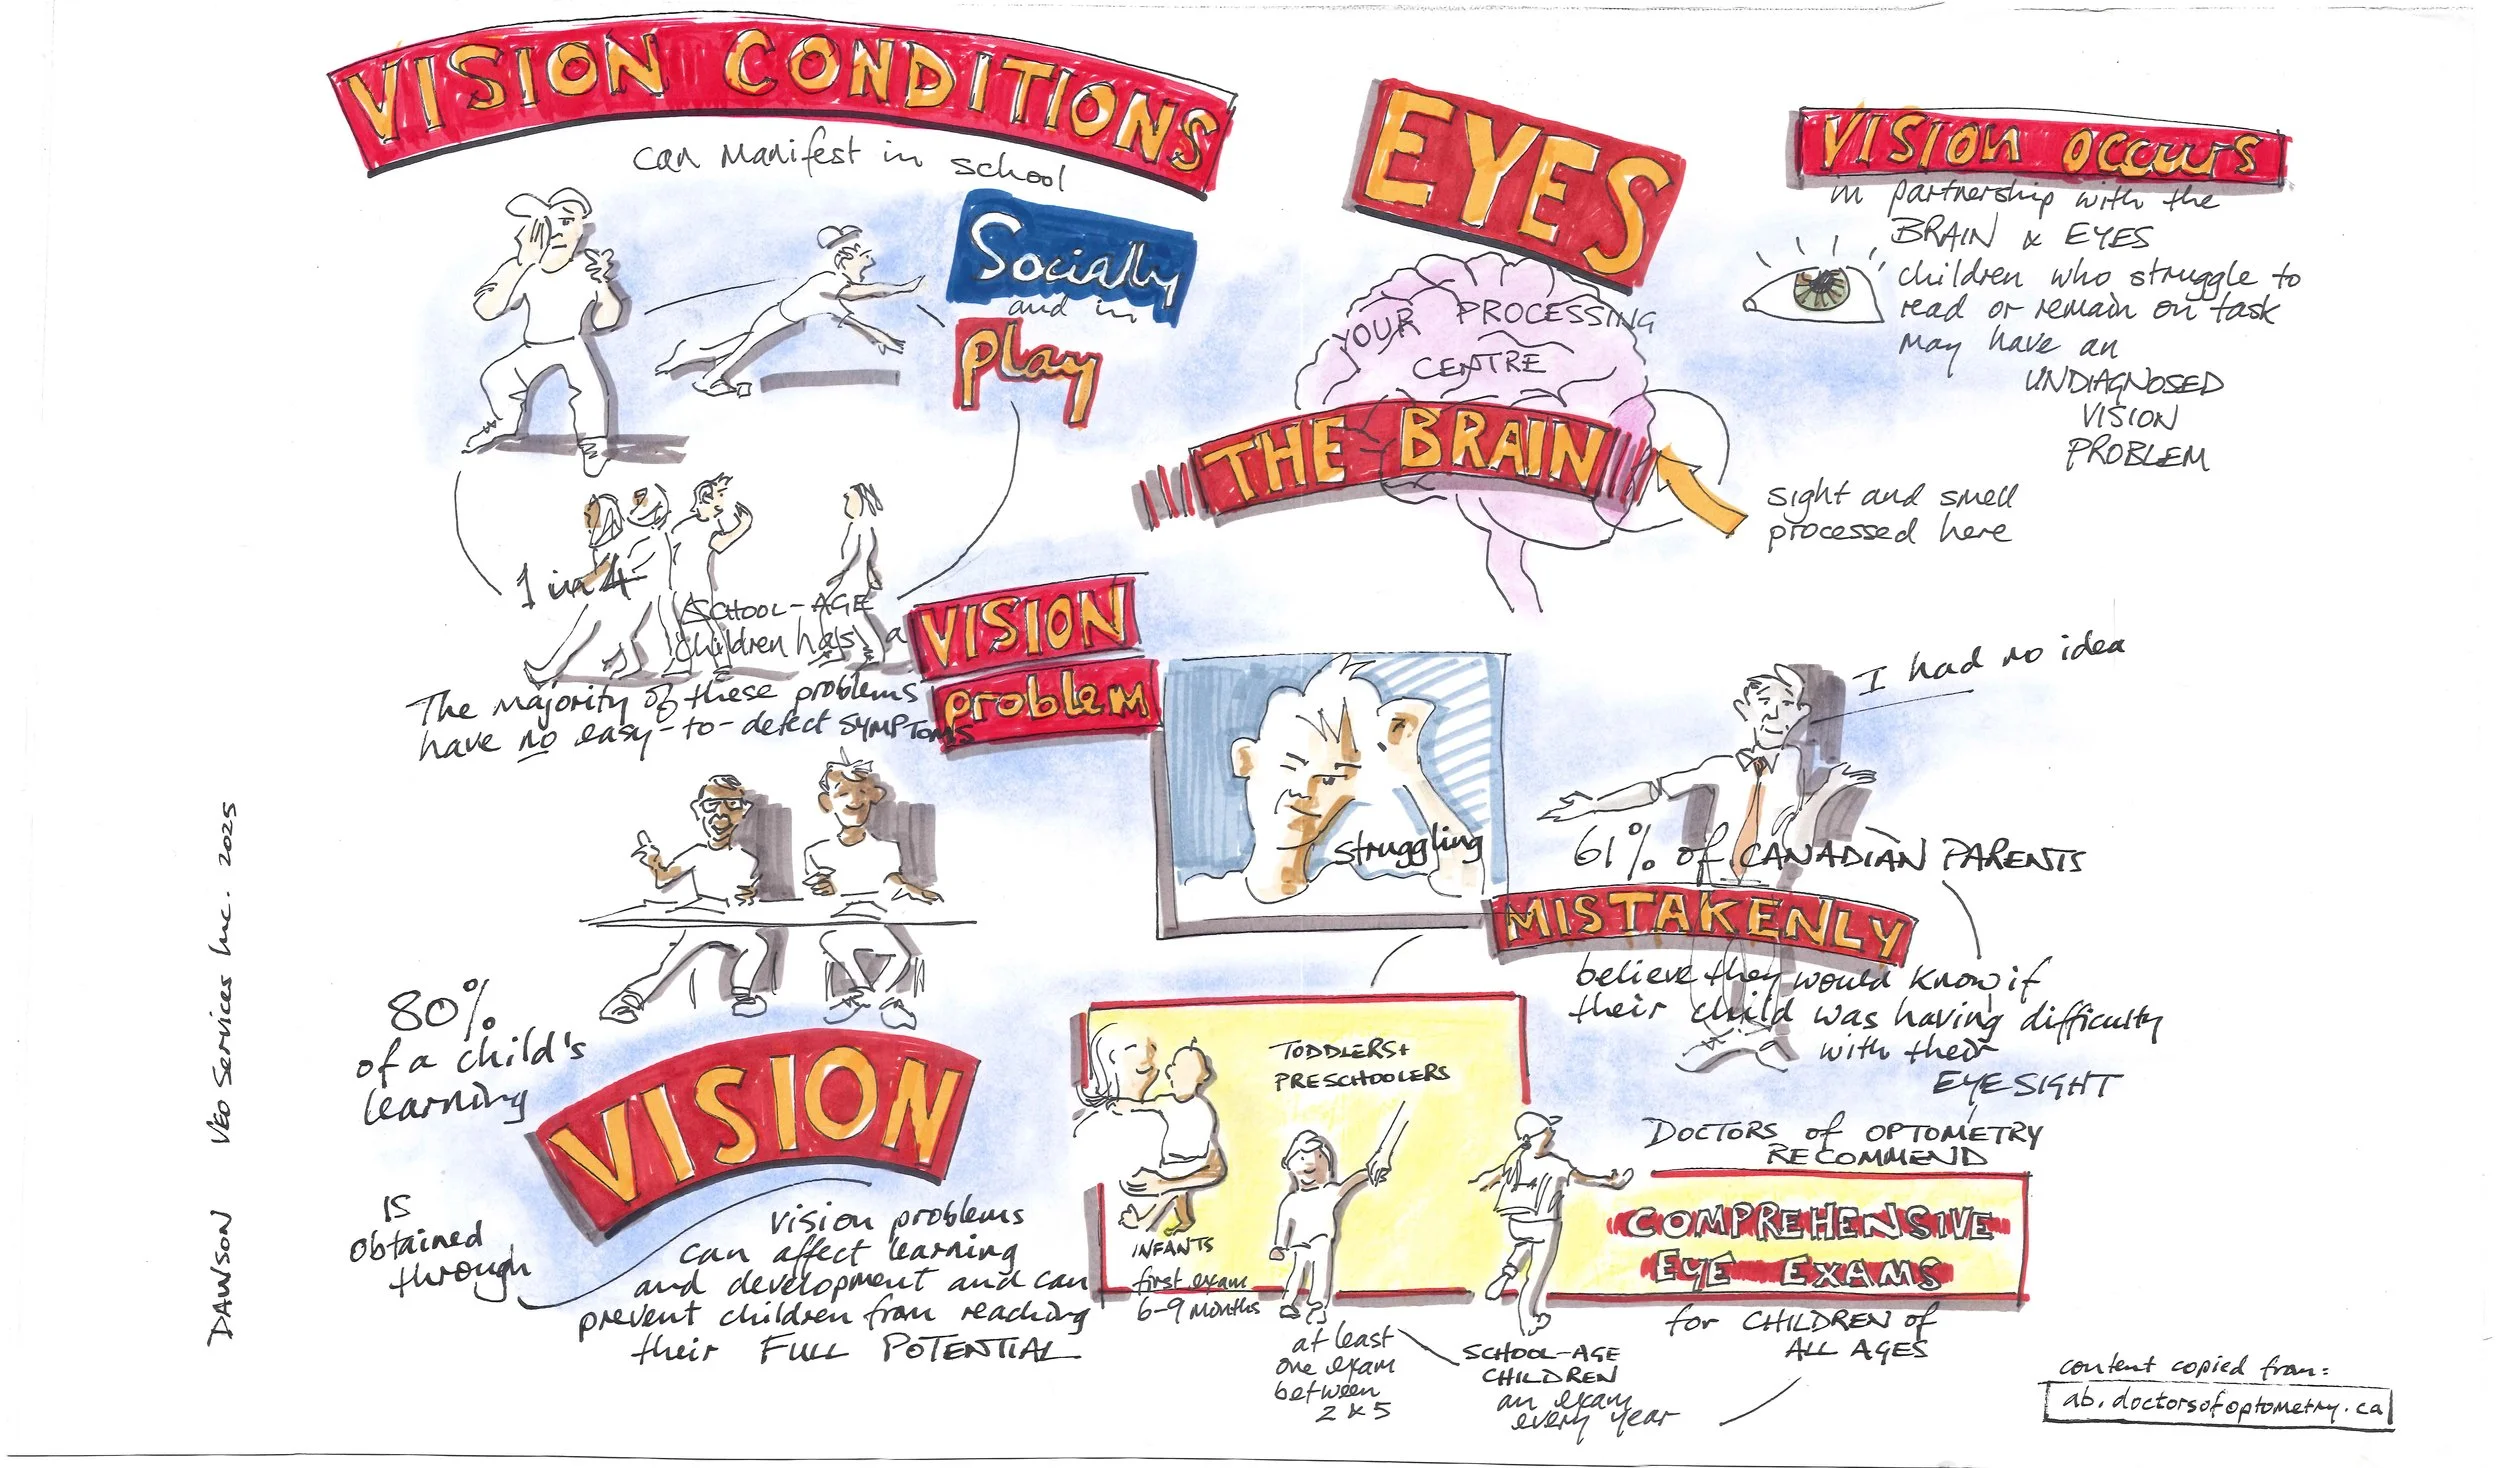 VISION CONDITIONS
can manifest in school
Socially
and in
play
1 in 4
SCHOOL-AGE
children has a
VISION
problem
The majority of these problems
have no easy-to-detect SYMPTOMS
EYES
YOUR PROCESSING
CENTRE
THE BRAIN
sight and smell
processed here
VISION occurs
in partnership with the
BRAIN & EYES
children who struggle to
read or remain on task
may have an
UNDIAGNOSED
VISION
PROBLEM
80%
of a child's
learning
IS
obtained
through
VISION
vision problems
can affect learning
and development and can
prevent children from reaching
their FULL POTENTIAL
struggling
I had no idea
61% of CANADIAN PARENTS
MISTAKENLY
believe they would know if
their child was having difficulty
with their
EYESIGHT
DOCTORS of OPTOMETRY
RECOMMEND
COMPREHENSIVE
EYE EXAMS
for CHILDREN of
ALL AGES
INFANTS
first exam
6-9 months
TODDLERS +
PRESCHOOLERS
at least
one exam
between
2 & 5
SCHOOL-AGE
CHILDREN
an exam
every year
content copied from:
ab.doctorsofoptometry.ca
DAWSON VEO Services Inc. 2025